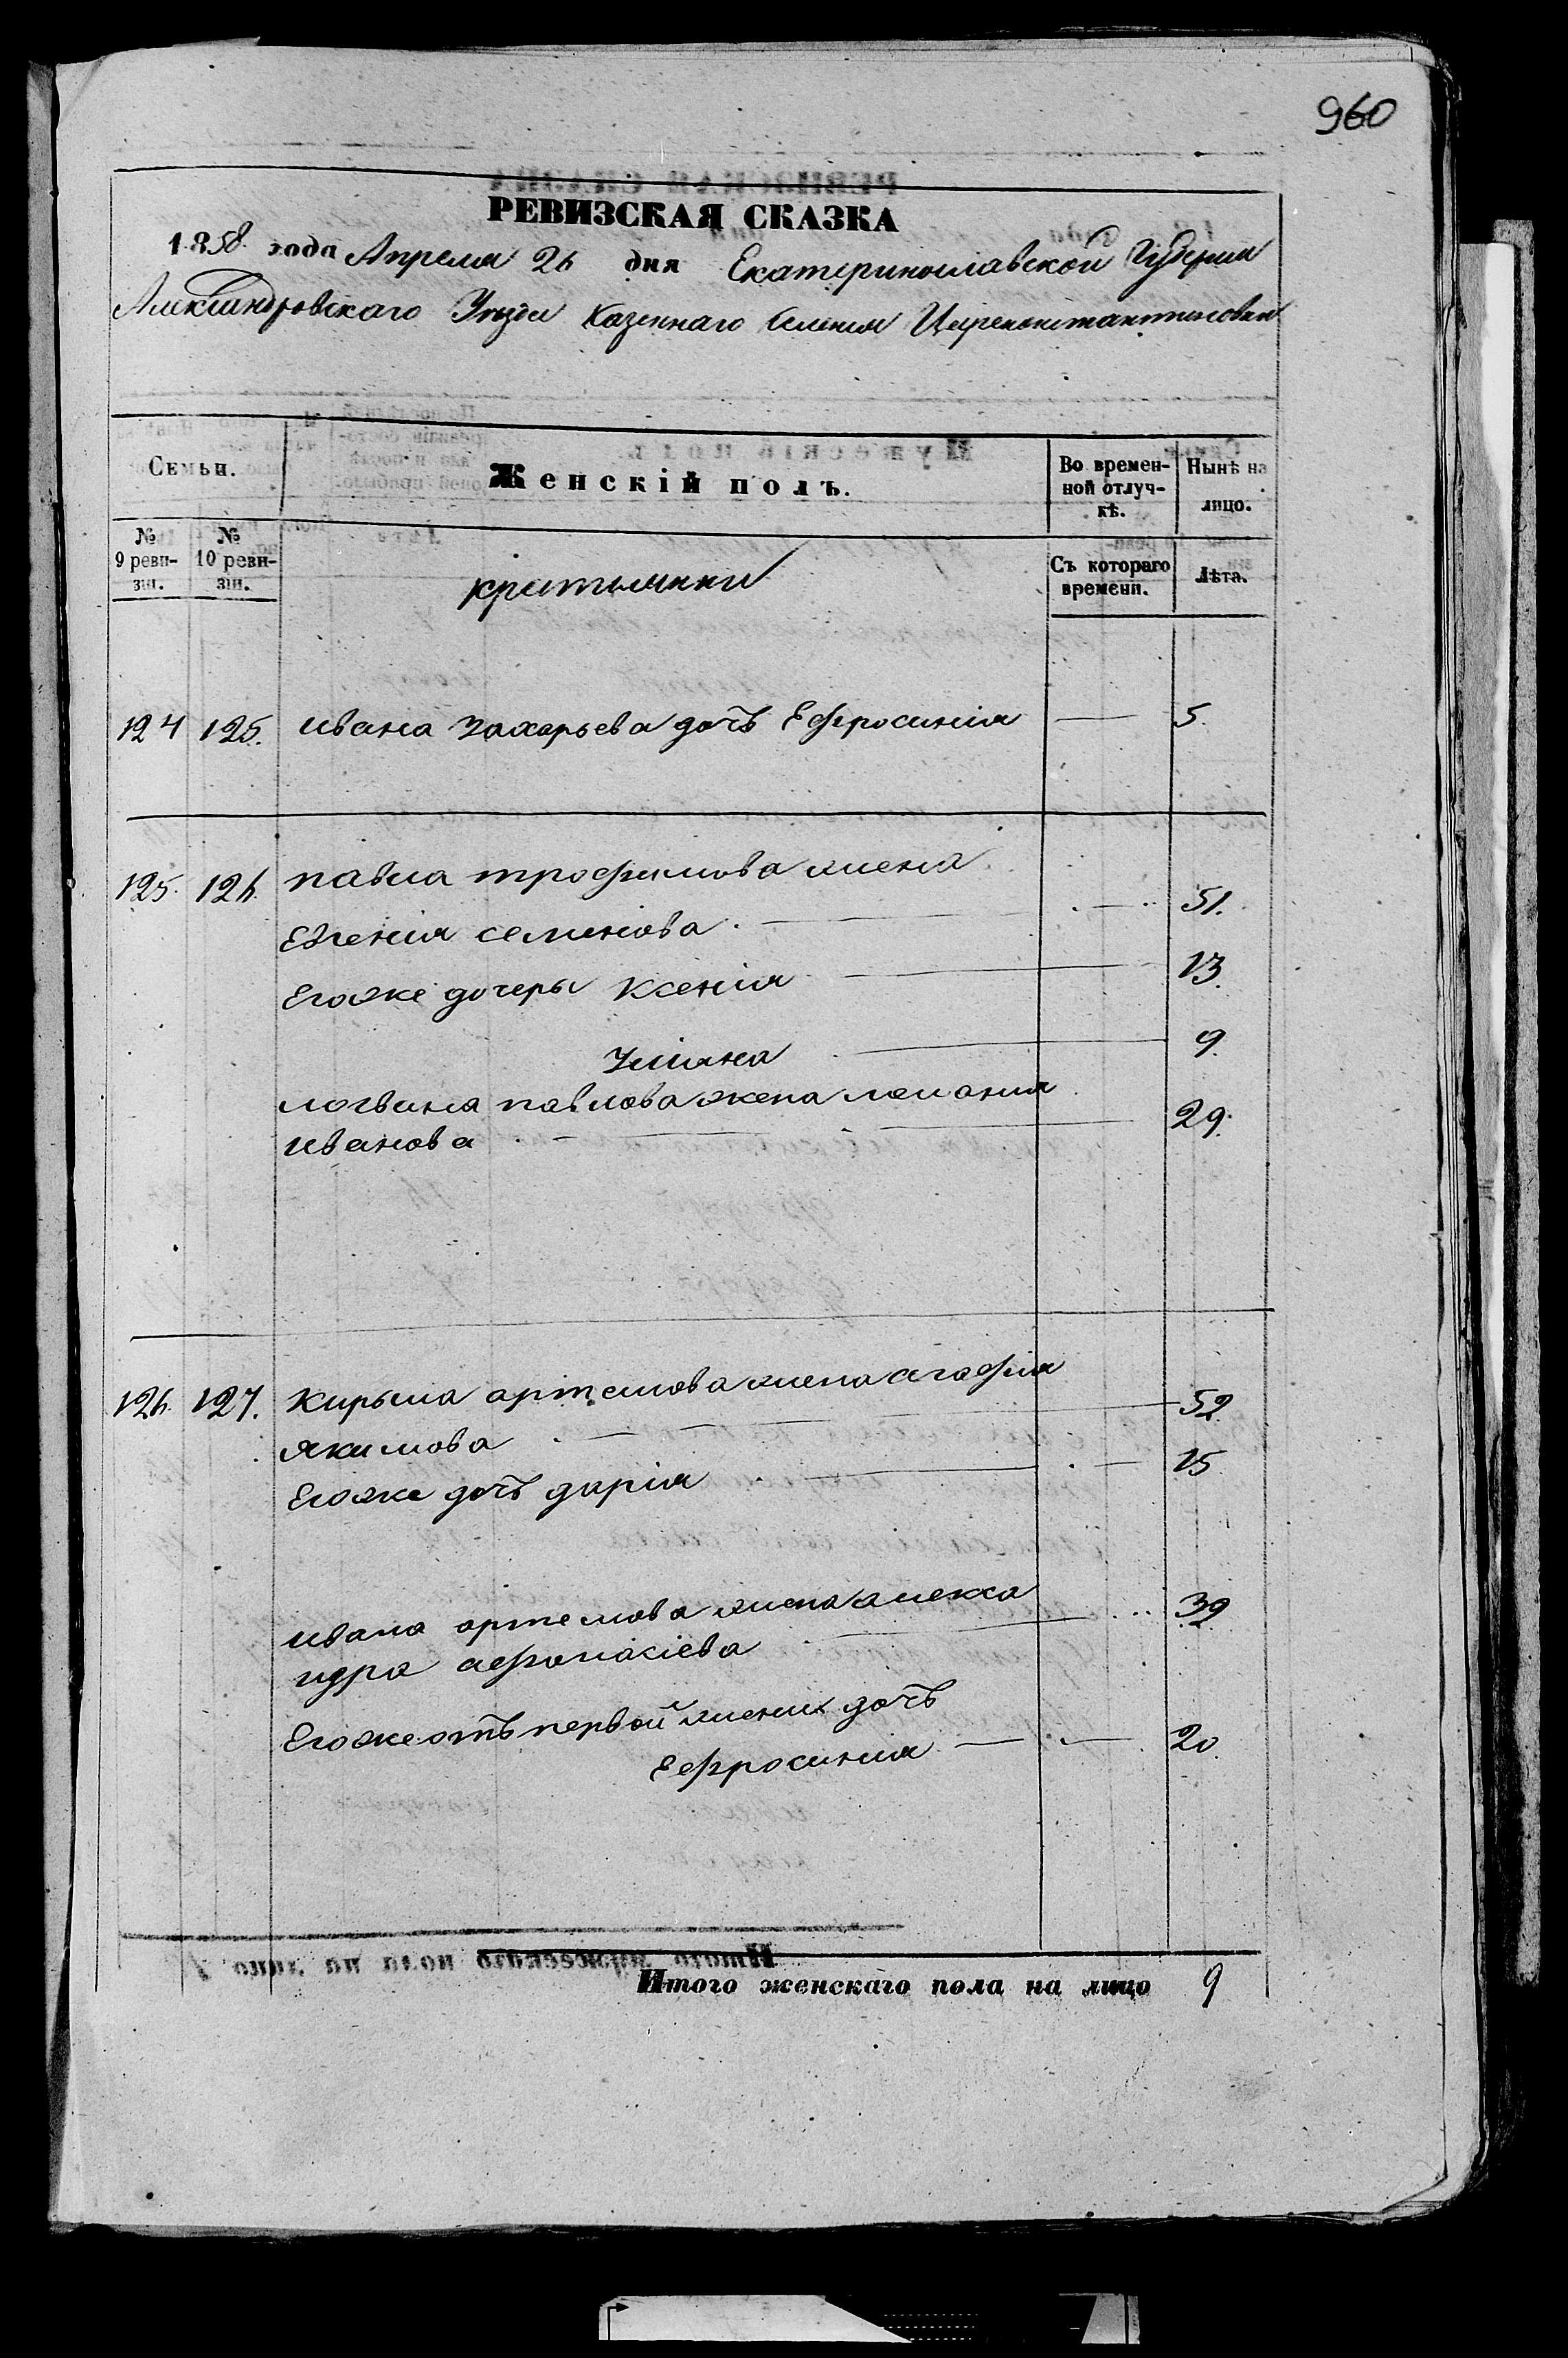 960
РЕВИЗСКАЯ СКАЗКА
1858 года Апреля 26 дня Екатеринославской Губернии
Александровского Уезда Казеннаго Селения Цареконстантиновки
Семьи.
Женскій полъ.
Во времен-
ной отлуч-
кѣ.
Нынѣ на
лицо.
№
9 реви-
зіи.
№
10 реви-
зіи.
Съ котораго
времени.
Лѣта.
124 125. ивана захарьева дочъ Ефросинія — 5.
125. 126. павла трофимова жена
Евгенія семинова — 51.
Егоже дочеры Ксенія — 13.
Уліяна — 9.
логвина павлова жена мелания
иванова — 29.
126. 127. Кирыла артемова жена агафія
якимова — 52
Егоже дочъ дарія — 15
ивана артемова жена алекса
ндра афонасіева — 39.
Егоже отъ первой жены дочъ
Ефросиния — 20.
Итого женскаго пола на лицо 9